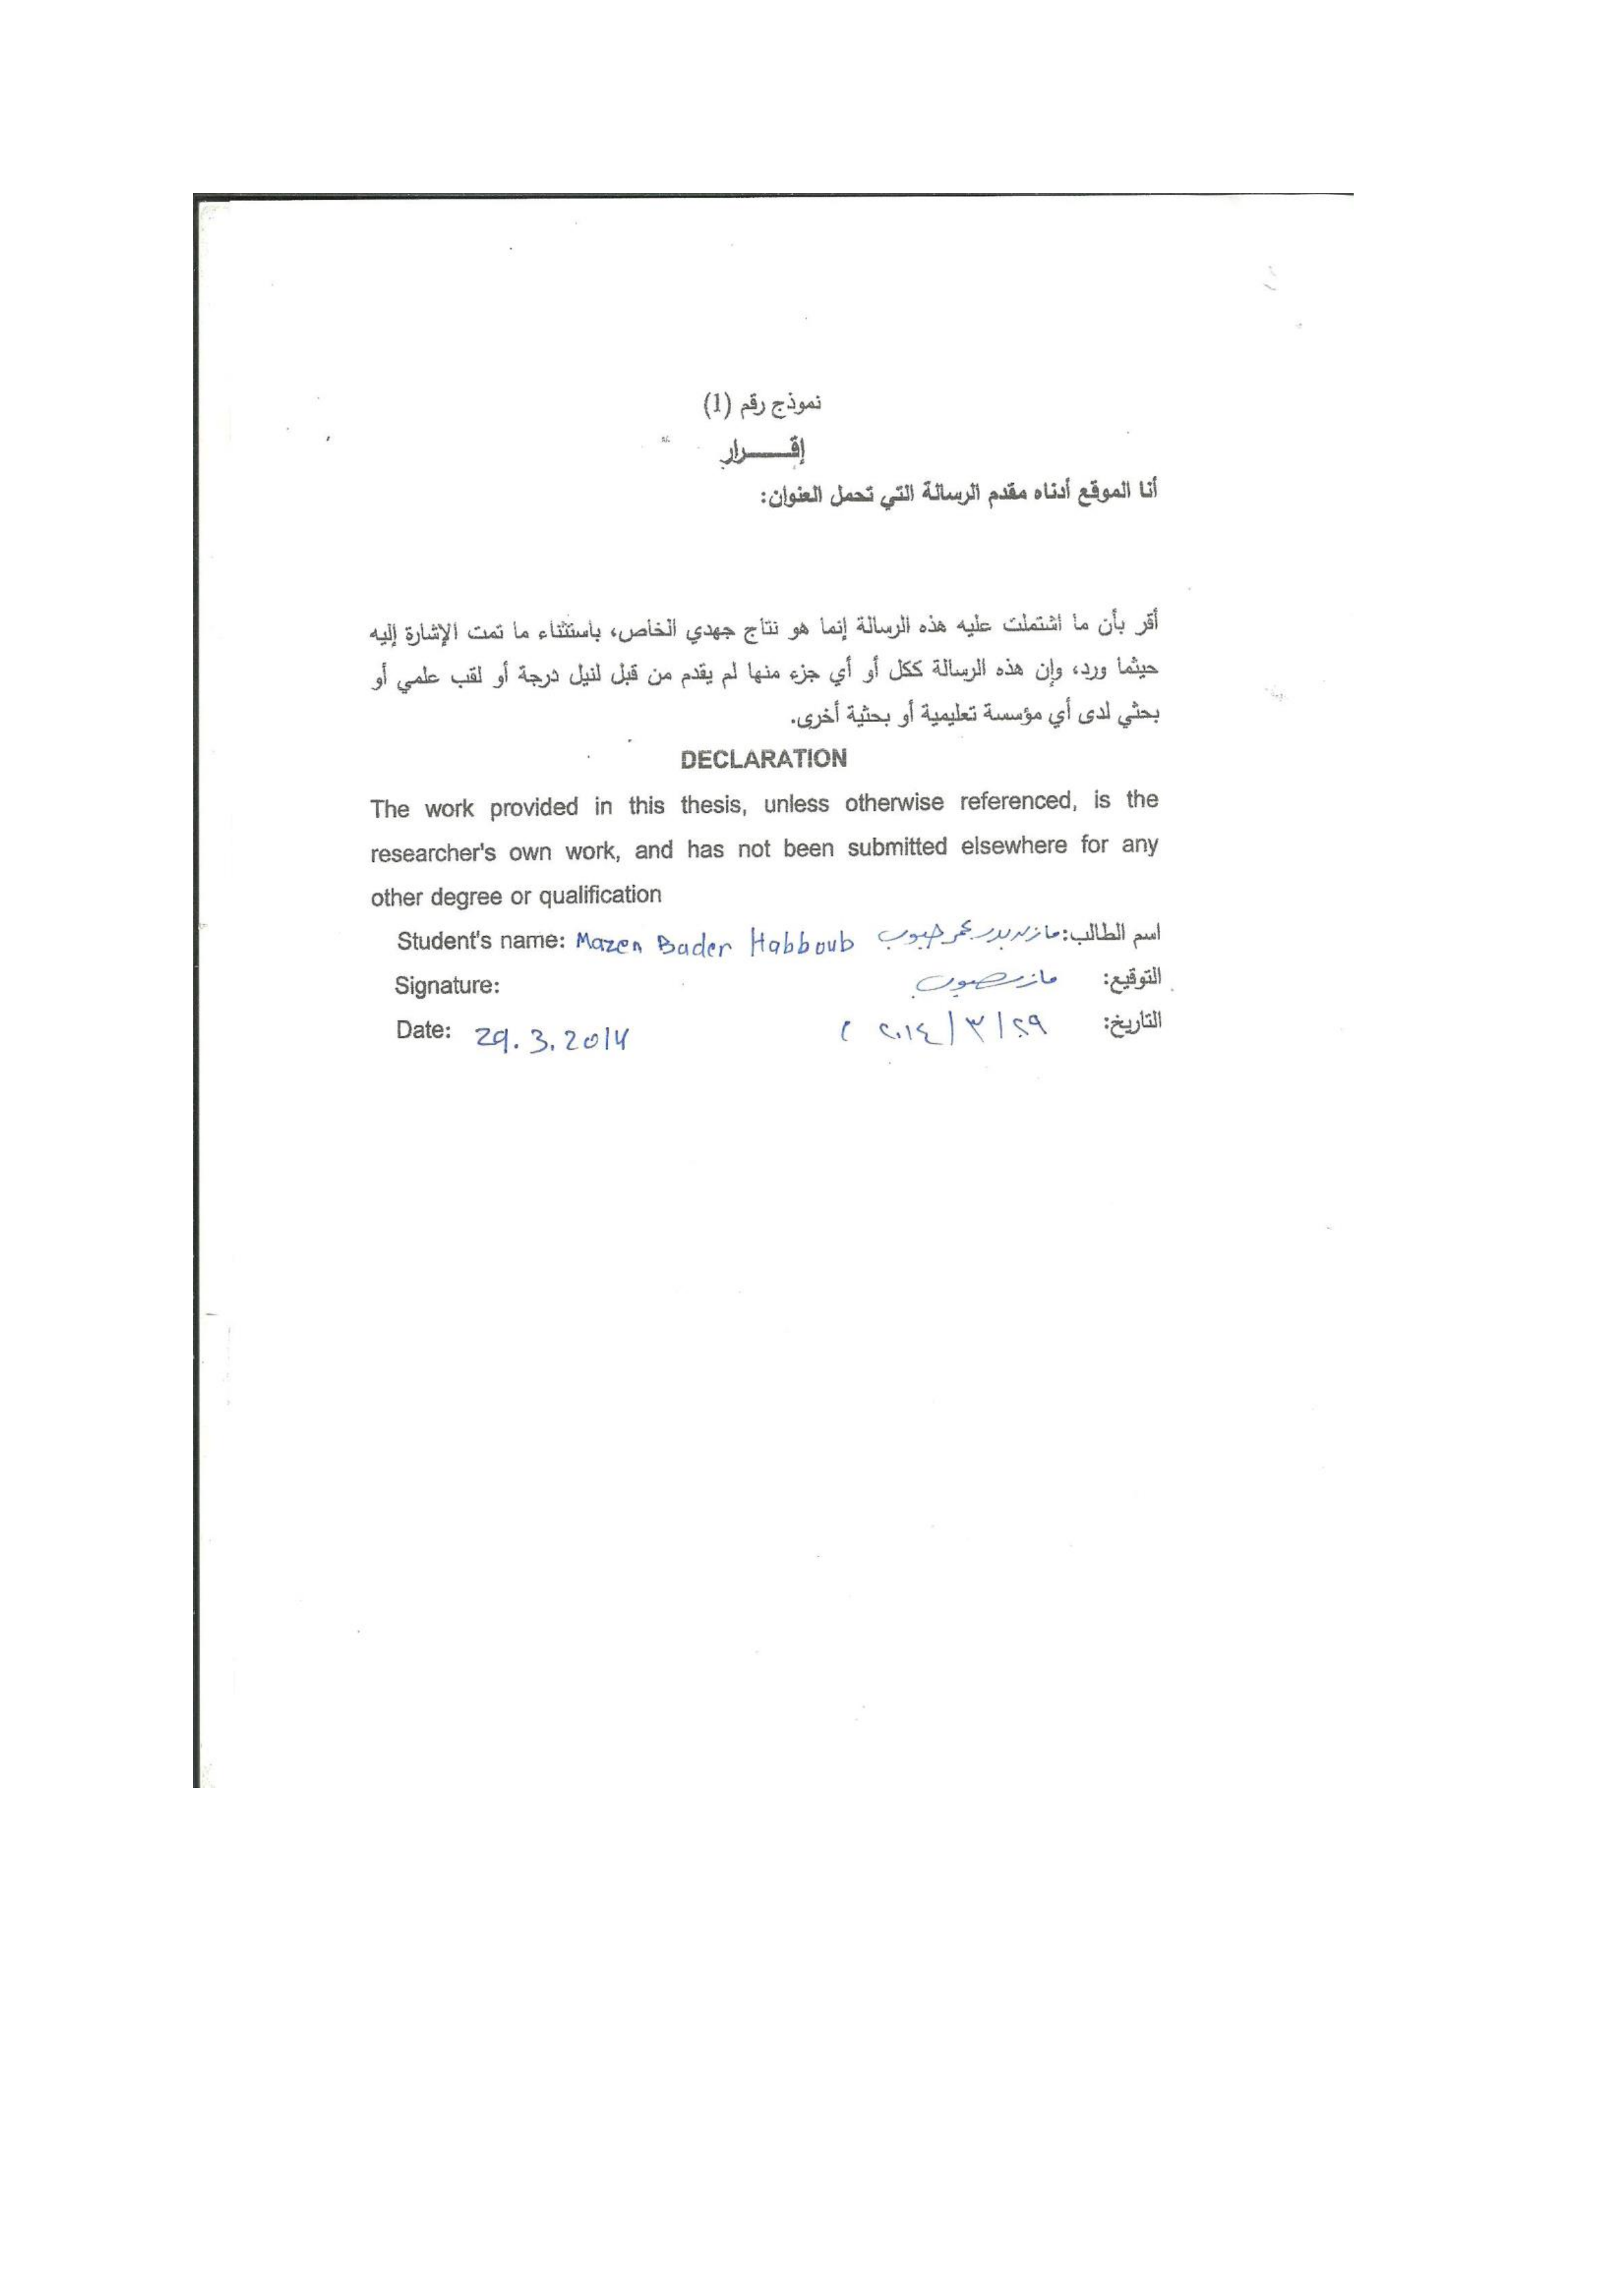 نموذج رقم (1)
إقـــــرار
أنا الموقع أدناه مقدم الرسالة التي تحمل العنوان:
أقر بأن ما اشتملت عليه هذه الرسالة إنما هو نتاج جهدي الخاص، باستثناء ما تمت الإشارة إليه
حيثما ورد، وإن هذه الرسالة ككل أو أي جزء منها لم يقدم من قبل لنيل درجة أو لقب علمي أو
بحثي لدى أي مؤسسة تعليمية أو بحثية أخرى.
DECLARATION
The work provided in this thesis, unless otherwise referenced, is the
researcher's own work, and has not been submitted elsewhere for any
other degree or qualification
Student's name: Mazen Bader Habboub اسم الطالب: مازن بدر عمر حبوب
Signature: التوقيع: مازن حبوب
Date: 29.3.2014 التاريخ: ٢٩/٣/٢٠١٤